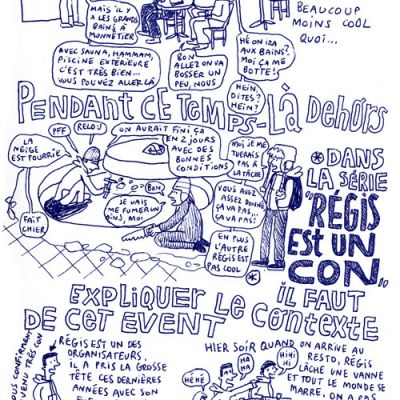 MAIS IL Y
A LES GRANDS
BAINS À
MONNÊTIER
BEAUCOUP
MOINS COOL
QUOI...
AVEC SAUNA, HAMMAM,
PISCINE EXTÉRIEURE
C'EST TRÈS BIEN...
VOUS POUVEZ ALLER LÀ
BON
ALLEZ ON VA
BOSSER UN
PEU, NOUS
HÉ ON IRA
AUX BAINS?
MOI ÇA ME
BOTTE!
HEIN,
DITES?
HEIN?
PENDANT CE TEMPS-LÀ DEHORS
LA
NEIGE
EST POURRIE
PFF
RELOU
ON AURAIT FINI ÇA
EN 2 JOURS
AVEC DES
BONNES
CONDITIONS
MOI JE ME
TUERAIS PAS À
LA TÂCHE
BON
JE VAIS
ME FUMER UN
JNJ, MOI
VOUS AVEZ
ASSEZ DONNÉ
ÇA VA PAS
ÇA VA PAS!
FAIT
CHIER
EN PLUS
L'AUTRE
RÉGIS EST
PAS COOL
*
* DANS
LA SÉRIE
"RÉGIS
EST UN
CON"
IL FAUT
EXPLIQUER LE CONTEXTE
DE CET EVENT
RÉGIS EST UN DES
ORGANISATEURS.
IL A PRIS LA GROSSE
TÊTE CES DERNIÈRES
ANNÉES AVEC SON
HIER SOIR QUAND ON ARRIVE AU
RESTO, RÉGIS
LÂCHE UNE VANNE
ET TOUT LE MONDE SE
MARRE, ON A PAS
HÉHÉ
HA
HA
HIHI